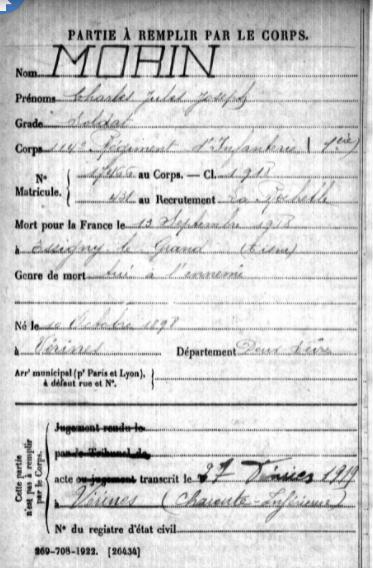 PARTIE À REMPLIR PAR LE CORPS.
Nom MORIN
Prénoms Charles Jules Joseph
Grade Soldat
Corps 114e Régiment d'Infanterie (1ère)
N° Matricule. { 17466 au Corps. — Cl. 1918
431 au Recrutement La Rochelle
Mort pour la France le 13 Septembre 1918
à Essigny le Grand (Aisne)
Genre de mort tué à l'ennemi
Né le 10 Octobre 1898
à Vérines Département Deux Sèvres
Arrt municipal (pr Paris et Lyon), à défaut rue et N°. {
Cette partie n'est pas à remplir par le Corps. {
Jugement rendu le
par le Tribunal de
acte ou jugement transcrit le 27 Février 1919
à Vérines (Charente-Inférieure)
N° du registre d'état civil
269-708-1922. [26434]